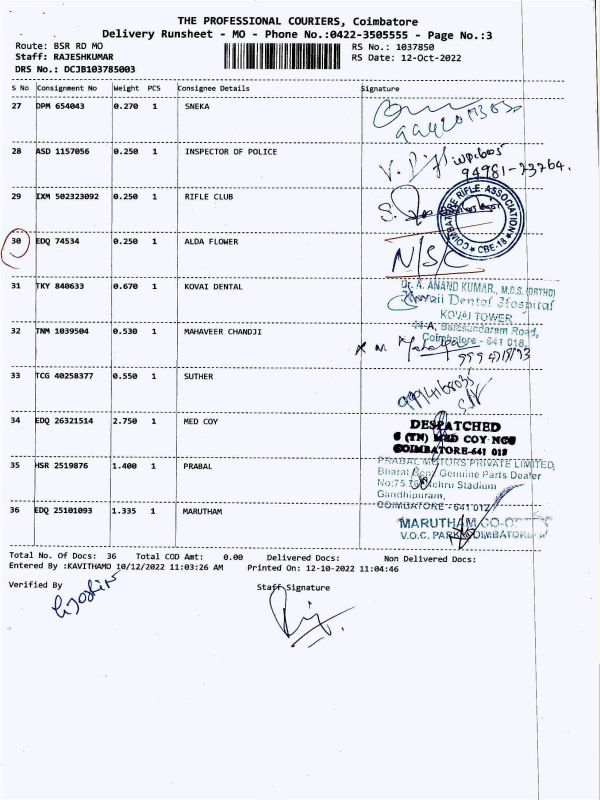 THE PROFESSIONAL COURIERS, Coimbatore
Delivery Runsheet - MO - Phone No.:0422-3505555 - Page No.:3
Route: BSR RD MO
RS No.: 1037850
Staff: RAJESHKUMAR
RS Date: 12-Oct-2022
DRS No.: DCJB103785003
S No Consignment No Weight PCS Consignee Details Signature
27 DPM 654043 0.270 1 SNEKA
28 ASD 1157056 0.250 1 INSPECTOR OF POLICE
94981-23764.
29 IXM 502323092 0.250 1 RIFLE CLUB
COIMBATORE RIFLE ASSOCIATION
CBE-18
30 EDQ 74534 0.250 1 ALDA FLOWER
N/S/C
31 TKY 840633 0.670 1 KOVAI DENTAL
Dr. A. ANAND KUMAR., M.D.S. (ORTHO)
Kovaii Dental Hospital
KOVAI TOWER
44-A, Balasundaram Road,
Coimbatore - 641 018.
32 TNM 1039504 0.530 1 MAHAVEER CHANDJI
33 TCG 40258377 0.550 1 SUTHER
34 EDQ 26321514 2.750 1 MED COY
DESPATCHED
6 (TN) MED COY NCC
COIMBATORE-641 018
35 HSR 2519876 1.400 1 PRABAL
PRABAL MOTORS PRIVATE LIMITED,
Bharat Benz Genuine Parts Dealer
Nehru Stadium
Gandhipuram,
COIMBATORE - 641 012
36 EDQ 25101093 1.335 1 MARUTHAM
MARUTHAM CO-O
V.O.C. PARK COIMBATORE
Total No. Of Docs: 36 Total COD Amt: 0.00 Delivered Docs: Non Delivered Docs:
Entered By :KAVITHAMO 10/12/2022 11:03:26 AM Printed On: 12-10-2022 11:04:46
Verified By
Staff Signature